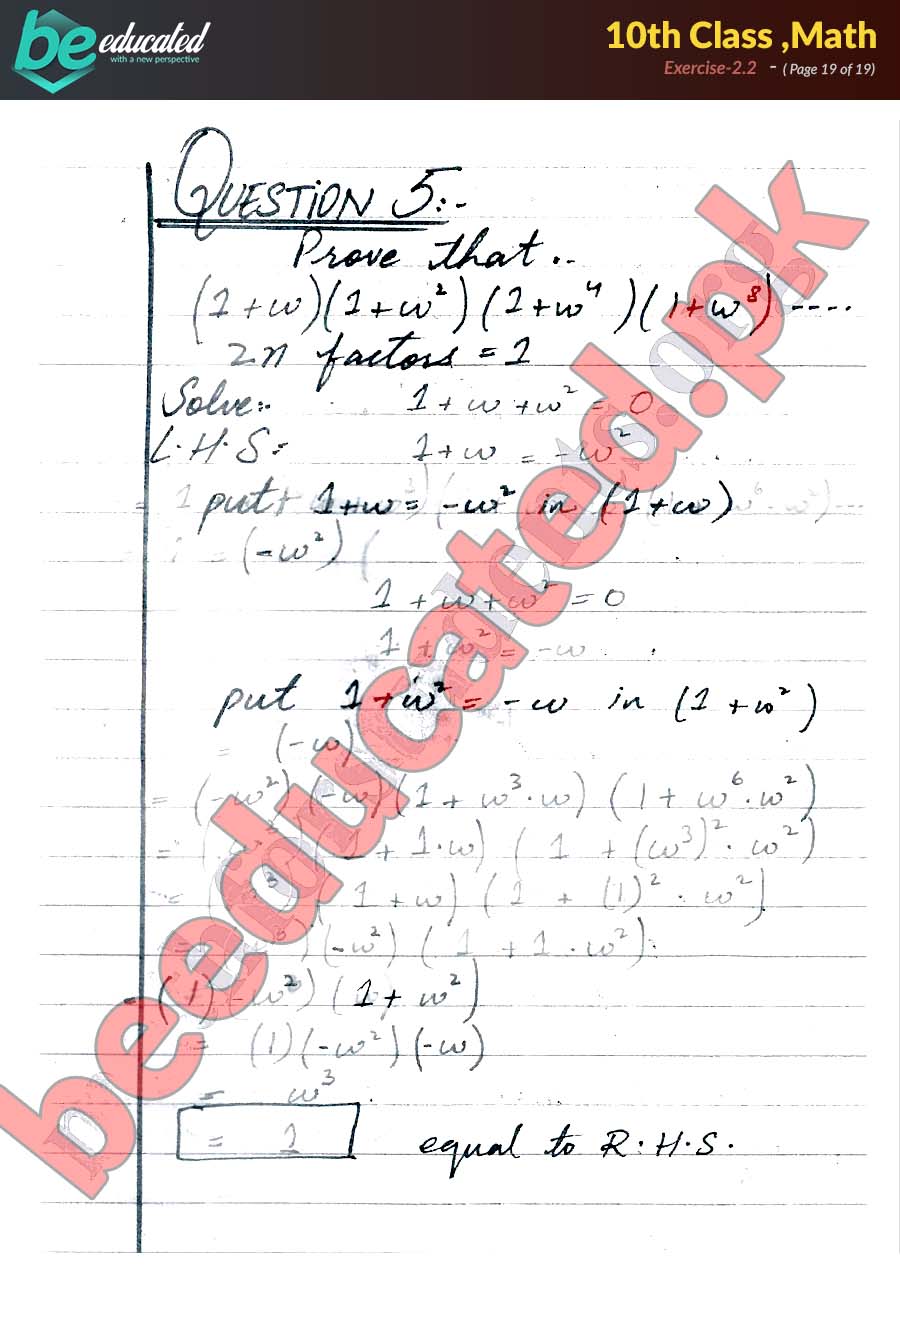 be educated
with a new perspective
10th Class ,Math
Exercise-2.2 - ( Page 19 of 19)
QUESTION 5:-
Prove that..
(1+ω)(1+ω²)(1+ω⁴)(1+ω⁸) ----
2n factors = 1
Solve:-
1+ω+ω² = 0
L.H.S=
1+ω = -ω²
put 1+ω = -ω² in (1+ω)
= (-ω²)(
1+ω+ω² = 0
1+ω² = -ω
put 1+ω² = -ω in (1+ω²)
= (-ω)
= (-ω²)(-ω)(1+ω³.ω)(1+ω⁶.ω²)
= (1+1.ω)(1+(ω³)².ω²)
= (1+ω)(1+(1)².ω²)
= (-ω²)(1+1.ω²)
= (1)(-ω²)(1+ω²)
= (1)(-ω²)(-ω)
= ω³
= 1
equal to R.H.S.
beeducated.pk